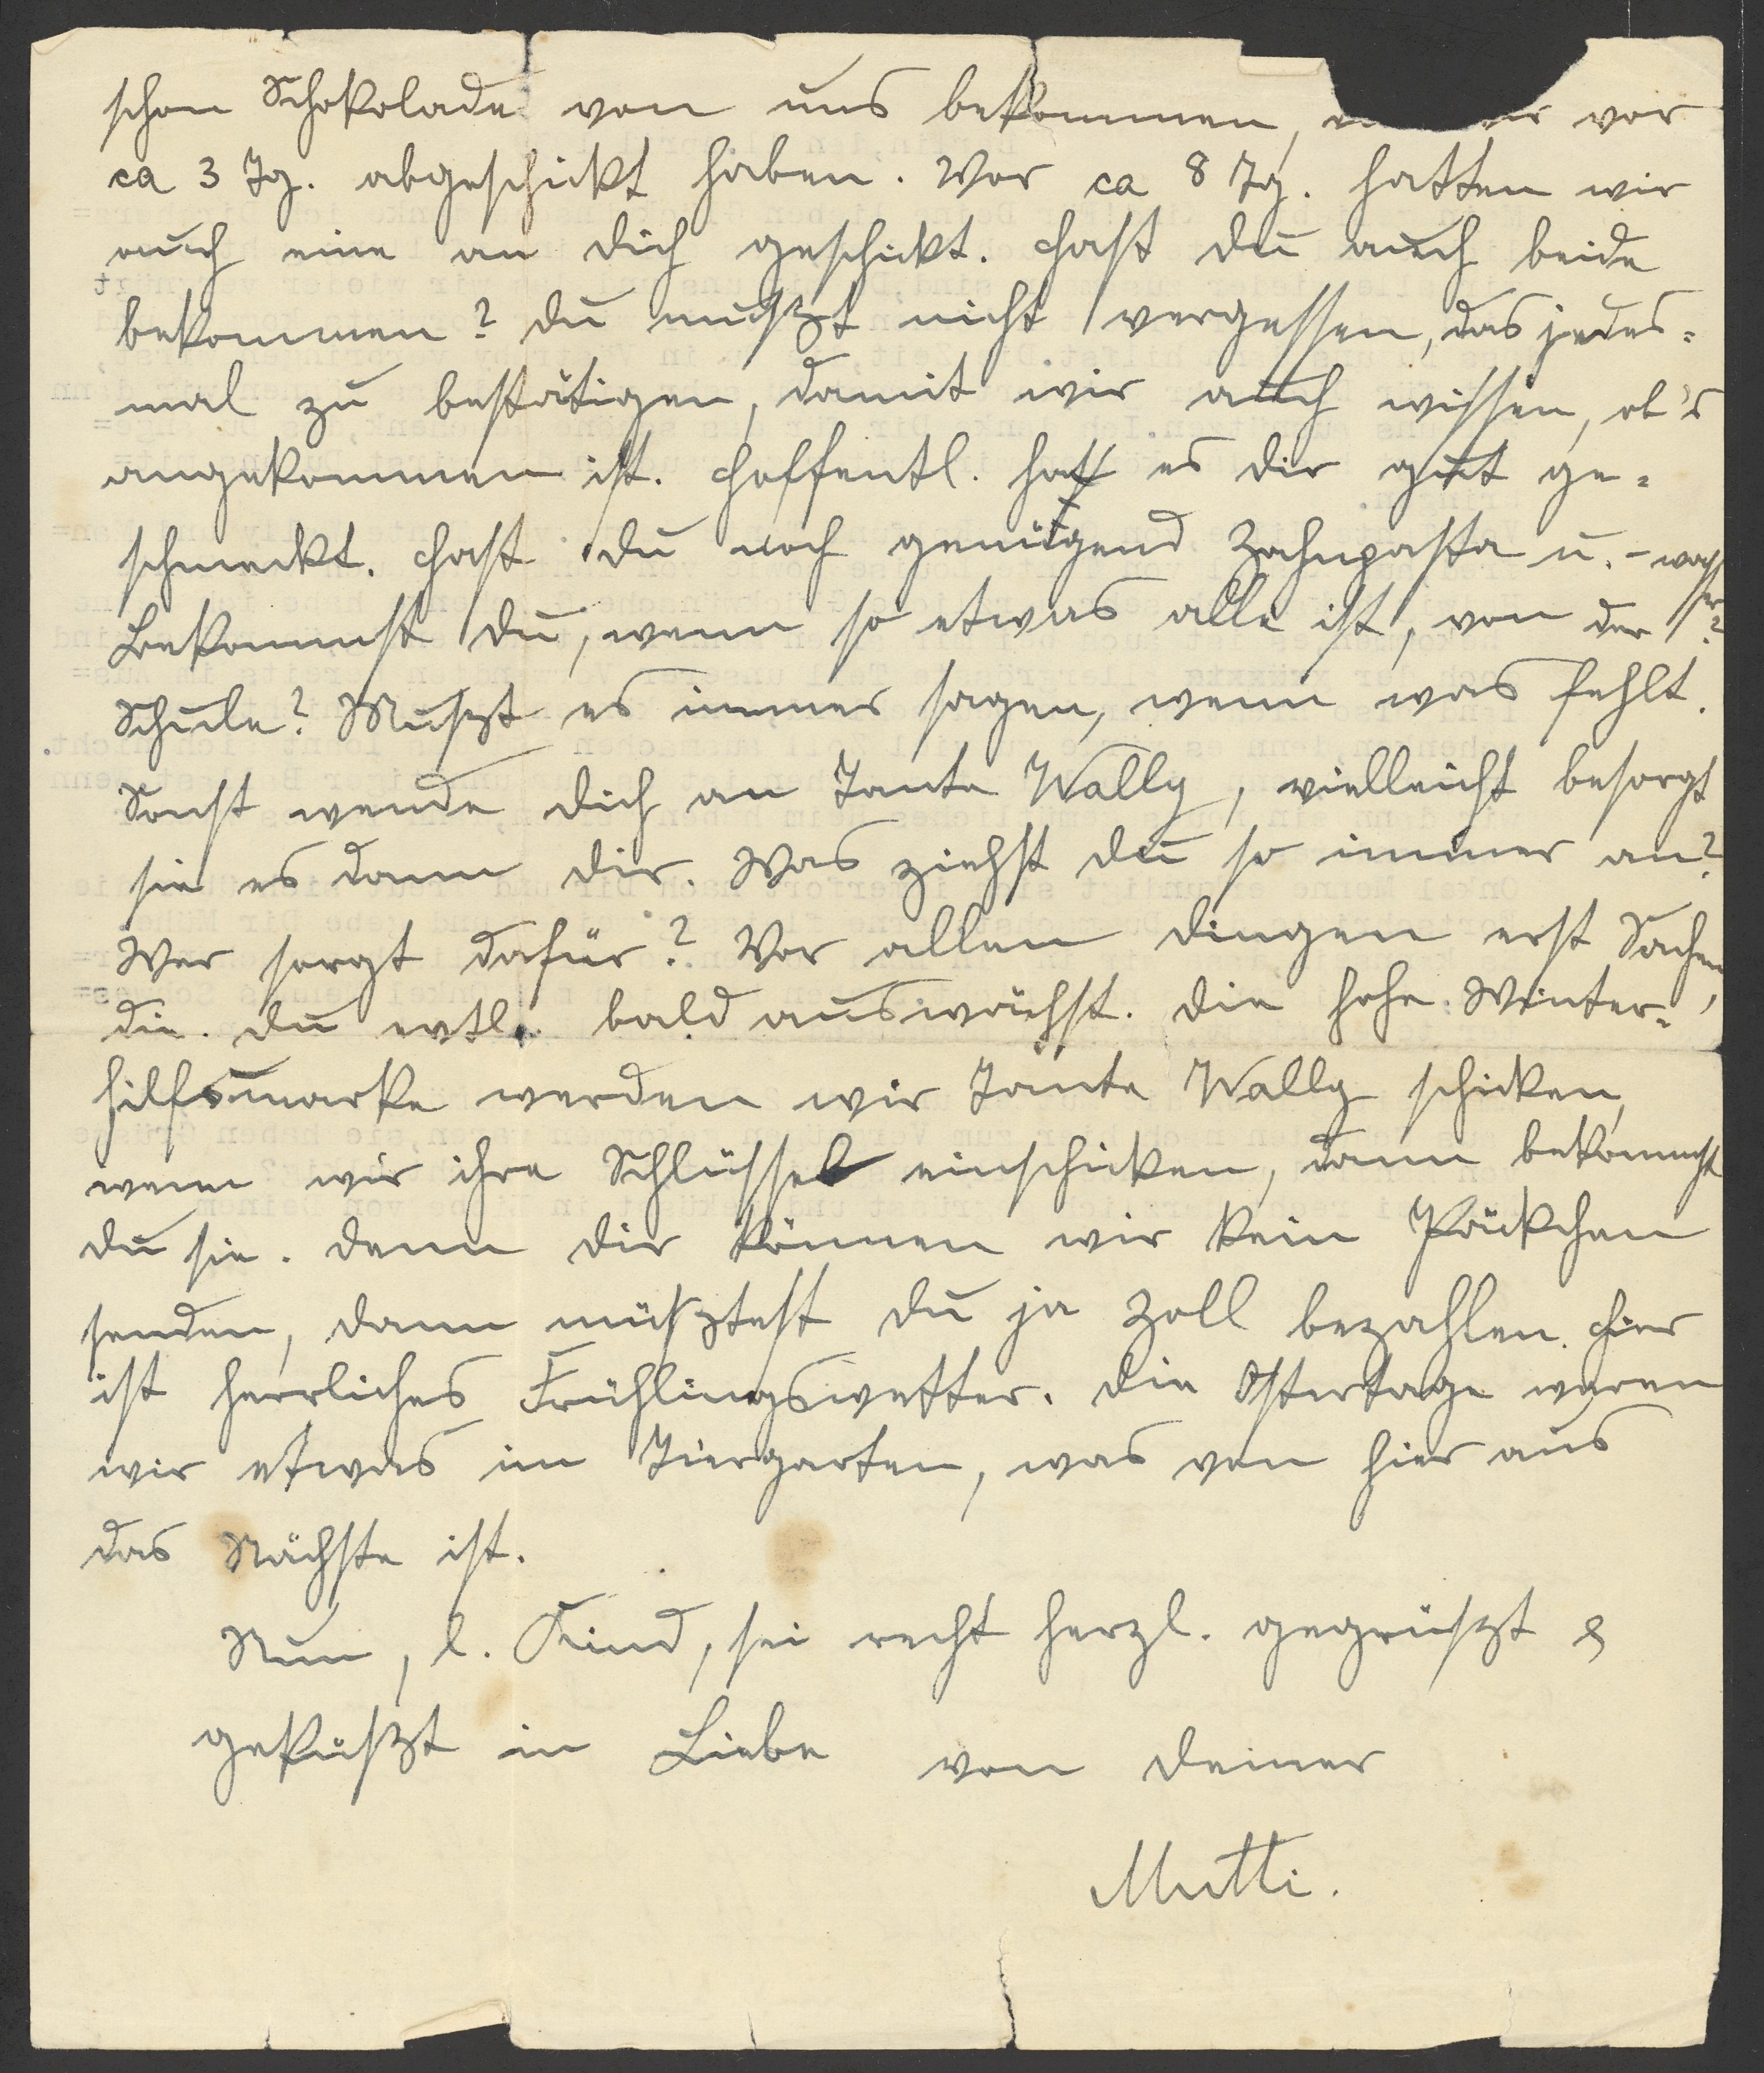 schon Schokolade von uns bekommen, vor
ca 3 Tg. abgeschickt haben. Vor ca 8 Tg. hatten wir
auch eine an Dich geschickt. Hast Du auch beide
bekommen? Du muszt nicht vergessen, das jedes=
mal zu bestätigen, damit wir auch wissen, ob's
angekommen ist. Hoffentl. hat es Dir gut ge=
schmeckt. Hast Du noch genügend Zahnpasta u. -wasser?
Bekommst Du, wenn so etwas alle ist, von der
Schule? Muszt es immer sagen, wenn was fehlt.
Sonst wende Dich an Tante Wally, vielleicht besorgt
sie es dann Dir. Was ziehst Du so immer an?
Wer sorgt dafür? Vor allem Dingen erst Sachen,
die Du evtl. bald auswächst. Die hohe Winter=
hilfsmarke werden wir Tante Wally schicken,
wenn wir ihre Schlüssel einschicken, dann bekommst
Du sie. Denn Dir können wir kein Päckchen
senden, dann müsztest Du ja Zoll bezahlen. Hier
ist herrliches Frühlingswetter. Die Ostertage waren
wir etwas im Tiergarten, was von hier aus
das Nächste ist.
Nun, l. Kind, sei recht herzl. gegrüszt &
geküszt in Liebe von Deiner
Mutti.